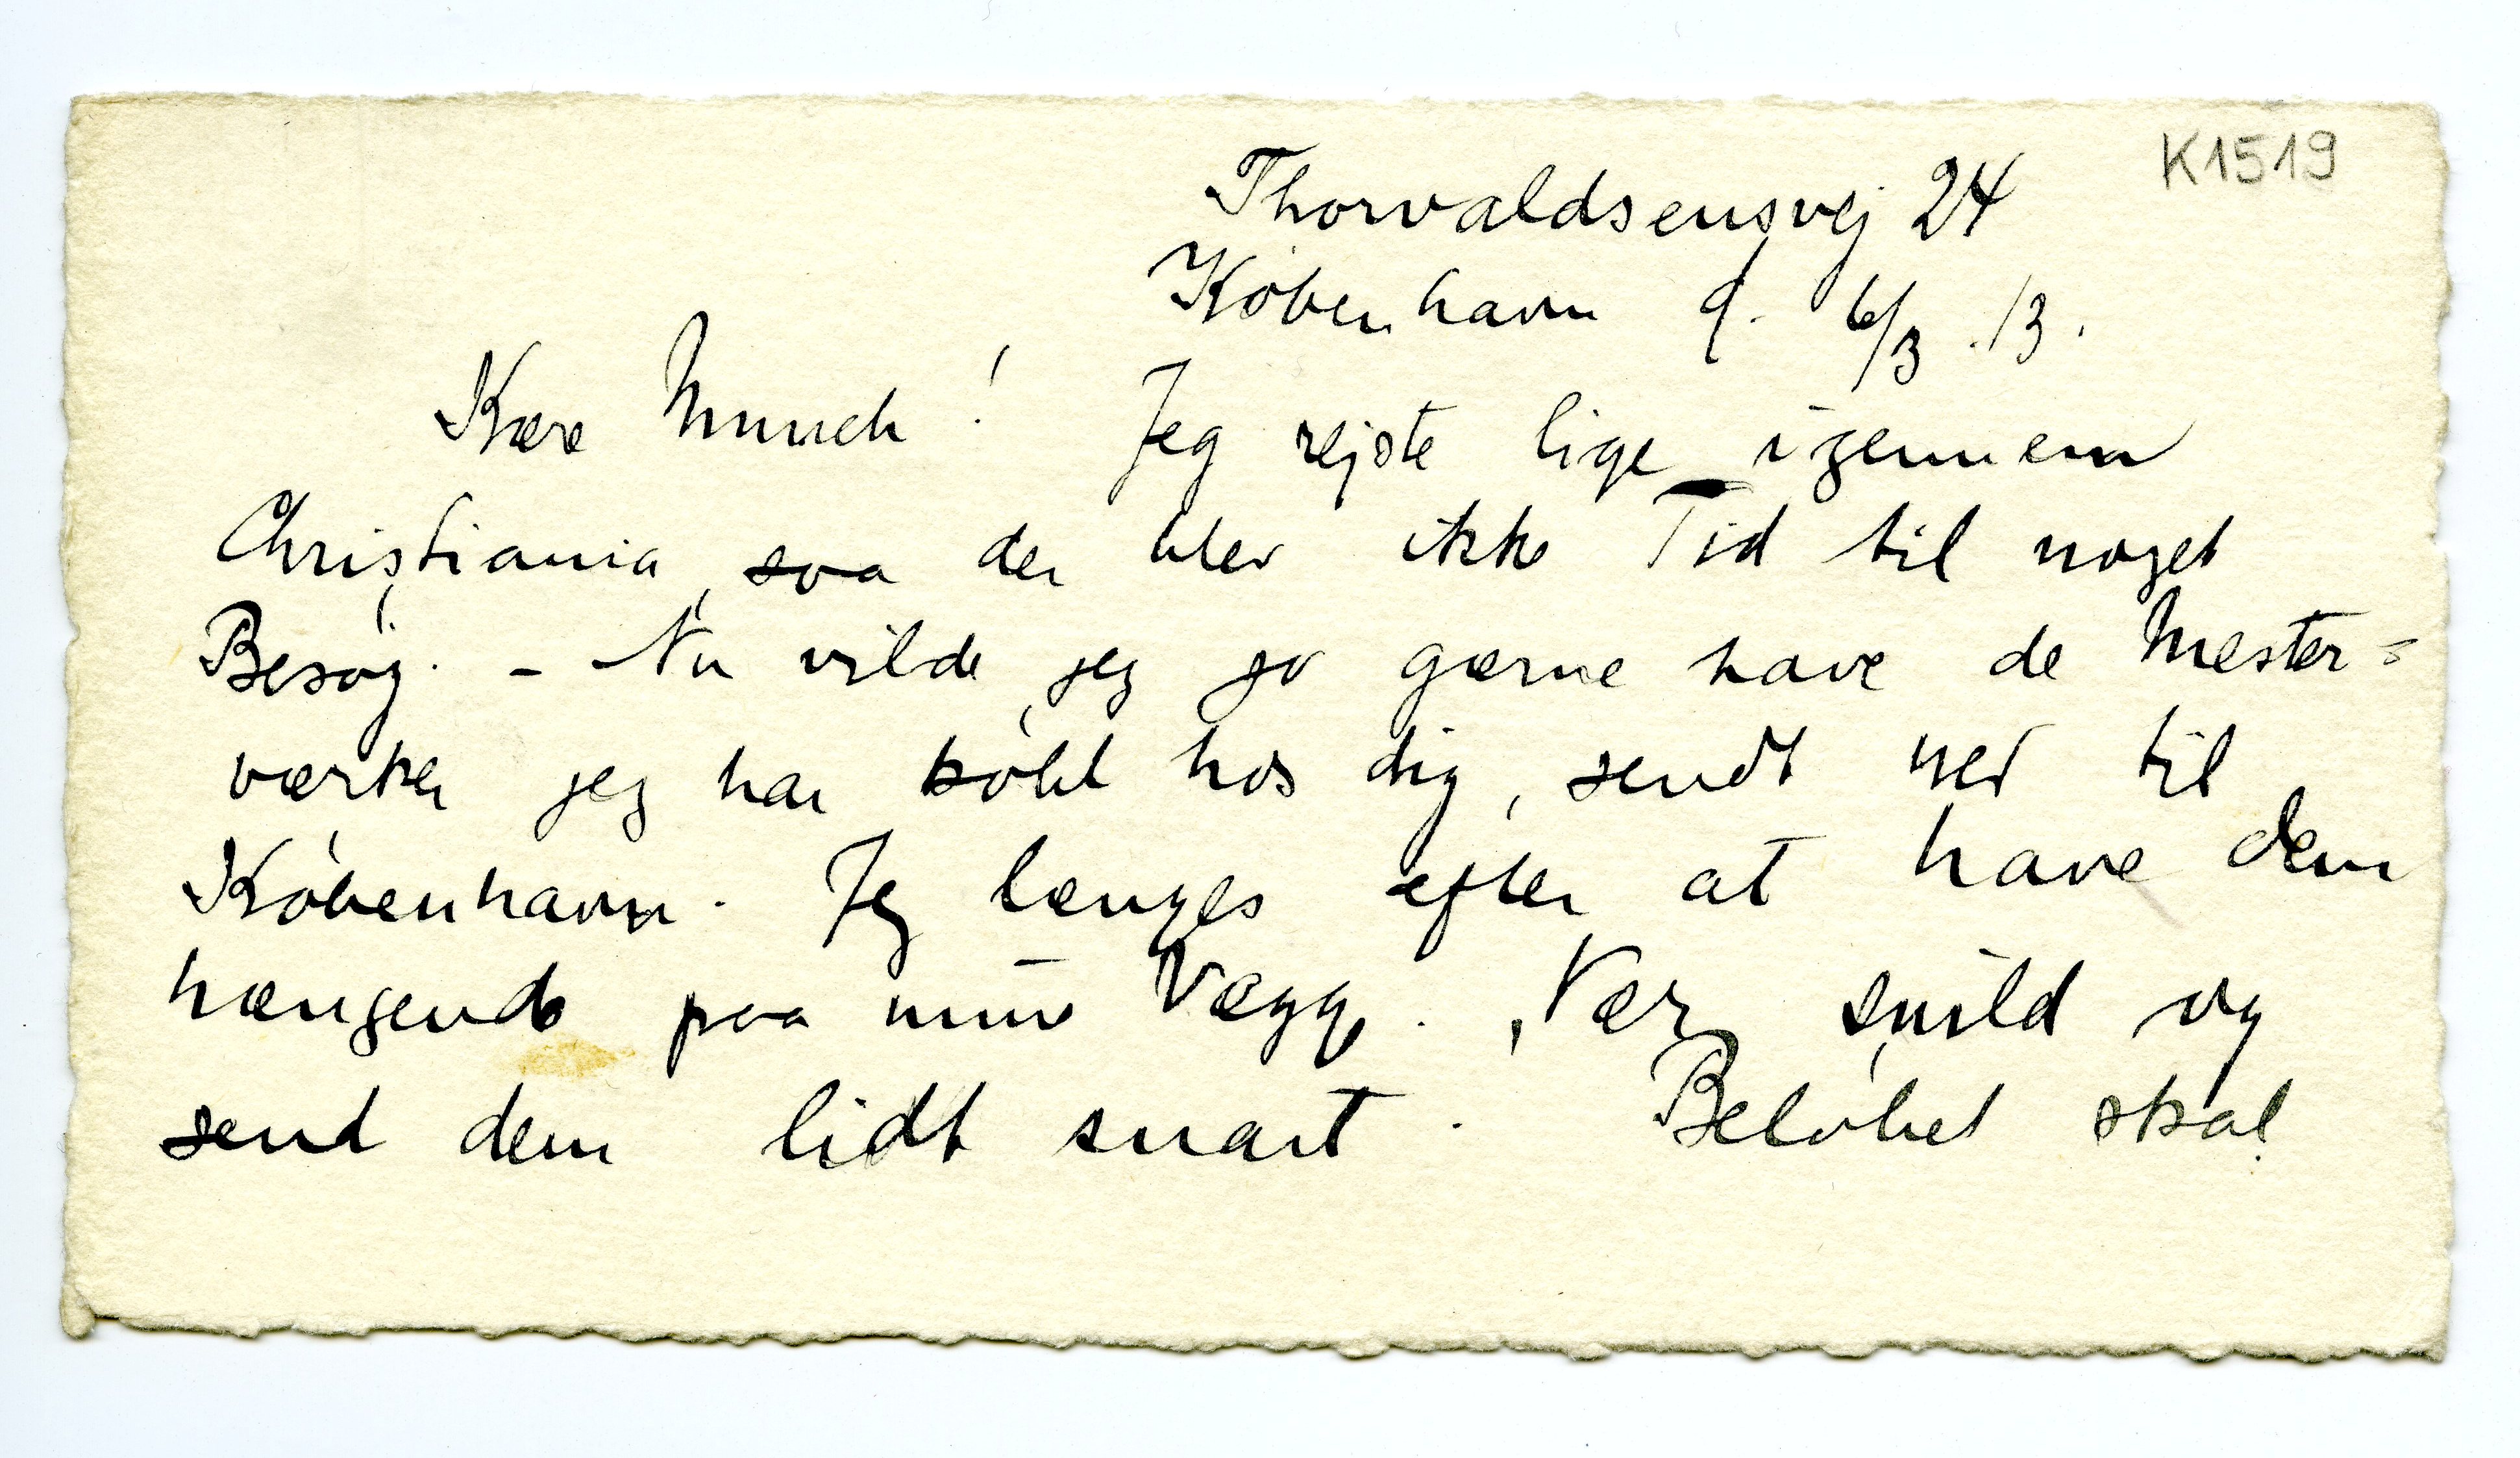 K1519
Thorvaldsensvej 24
København Q. 6/3 .13.
Kære Munch! Jeg rejste lige igennem
Christiania, saa der blev ikke Tid til noget
Besøg. – Nu vilde jeg jo gærne have de Mester=
værker jeg har købt hos dig, sendt ned til
København. Jeg længes efter at have dem
hængende paa mine Vægge. Vær snild og
send dem lidt snart. Beløbet skal